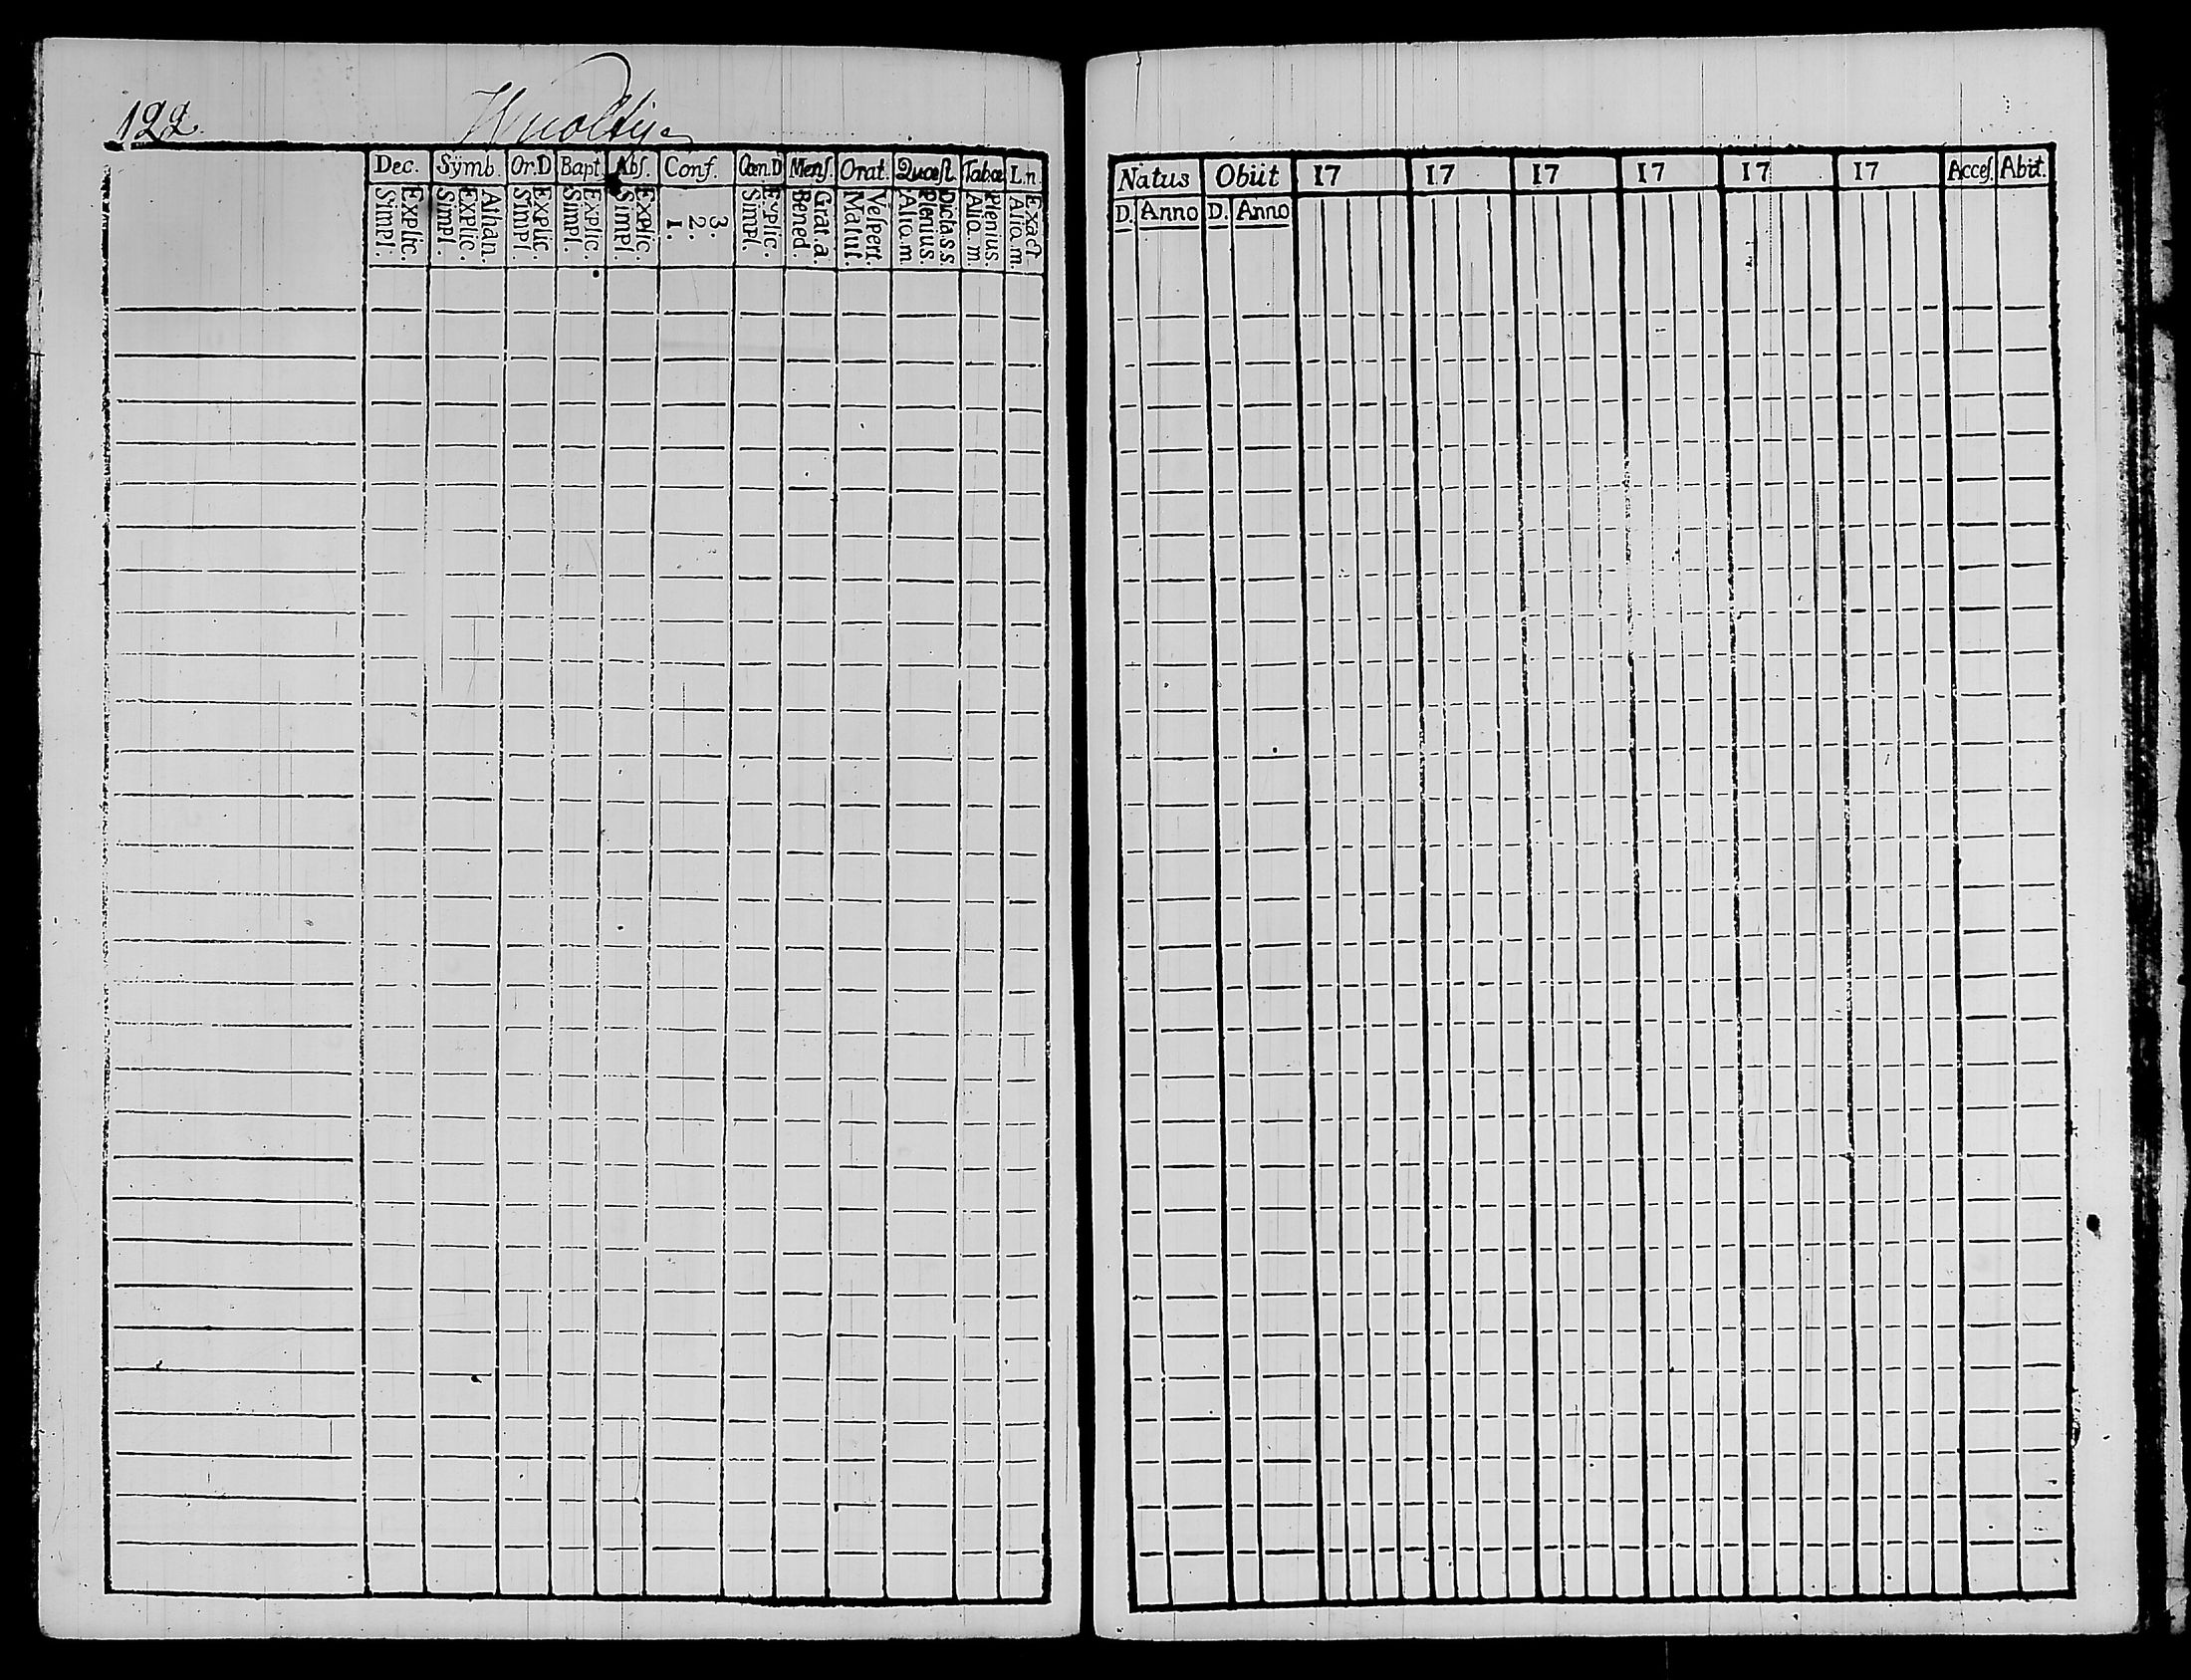 122
Wuoltis
Dec. Sÿmb. Or.D Bapt. Abſ. Conf. Cœn.D Menſ. Orat. Quæſt. Tabœ L.n.
Explic. Simpl. Athan. Explic. Simpl. Explic. Simpl. Explic. Simpl. Explic. Simpl. 3. 2. 1. Explic. Simpl. Grat. a. Bened. Veſpert. Matut. Dicta.s.s. Plenius. Aliq.m. Plenius. Aliq.m. Exact Aliq.m.
Natus Obiit 17 17 17 17 17 17 Acceſ. Abit.
D. Anno D. Anno